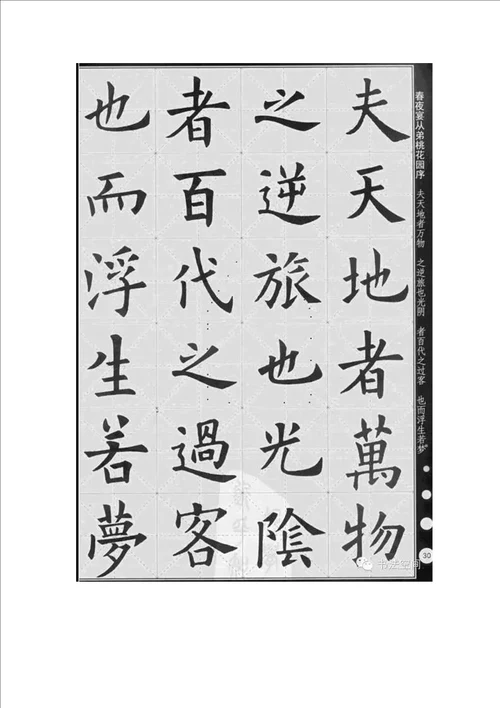 夫天地者萬物
之逆旅也光陰
者百代之過客
也而浮生若夢
春夜宴从弟桃花园序
夫天地者万物 之逆旅也光阴 者百代之过客 也而浮生若梦
30
书法空间